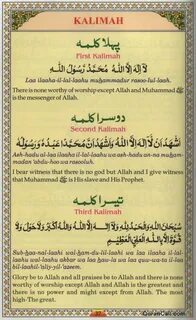 KALIMAH
پہلا کلمہ
First Kalimah
لَآ اِلٰهَ اِلَّا اللّٰهُ مُحَمَّدٌ رَّسُوْلُ اللّٰهِ
Laa ilaaha-il-lal-laahu muhammadur rasoo-lul-laah.
There is none worthy of worship except Allah and Muhammad ﷺ
is the messenger of Allah.
دوسرا کلمہ
Second Kalimah
اَشْهَدُ اَنْ لَّآ اِلٰهَ اِلَّا اللّٰهُ وَاَشْهَدُ اَنَّ مُحَمَّدًا عَبْدُهٗ وَرَسُوْلُهٗ
Ash-hadu al-laa ilaaha il-lal-laahu wa ash-hadu an-na muham-
madan 'abdu-hoo wa rasooluh.
I bear witness that there is no god but Allah and I give witness
that Muhammad ﷺ is His slave and His Prophet.
تیسرا کلمہ
Third Kalimah
سُبْحَانَ اللّٰهِ وَالْحَمْدُ لِلّٰهِ وَلَآ اِلٰهَ اِلَّا اللّٰهُ وَاللّٰهُ اَكْبَرُ وَلَا حَوْلَ وَلَا
قُوَّةَ اِلَّا بِاللّٰهِ الْعَلِيِّ الْعَظِيْمِ
Sub-haa-nal-laahi wal-ham-du-lil-laahi wa laa ilaaha il-lal-
laahu wal-laahu akbar wa laa haw-la wa laa quw-wa-ta il-laa
bil-laahil-'aliy-yil-'azeem.
Glory be to Allah and all praises be to Allah and there is none
worthy of worship except Allah and Allah is the greatest and
there is no power and might except from Allah. The most
high-The great.